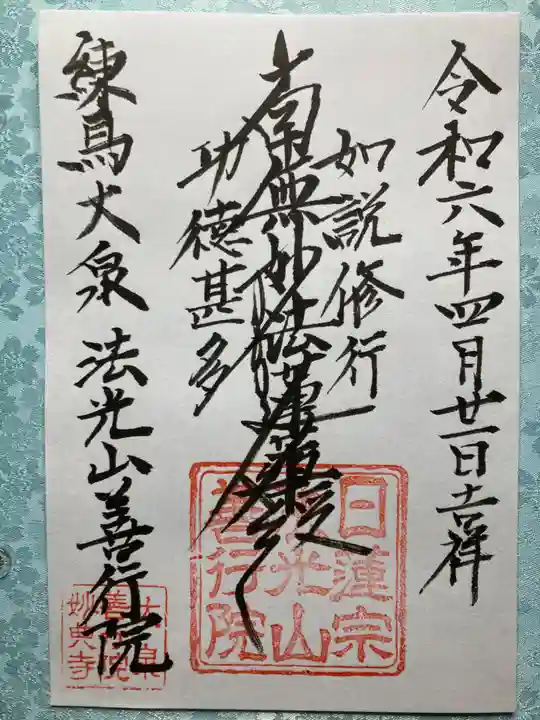 令和六年四月廿一日吉祥
如説修行
南無妙法蓮華経
功徳甚多
練馬大泉 法光山善行院
日蓮宗
法光山
善行院
大泉
善行院
妙典寺